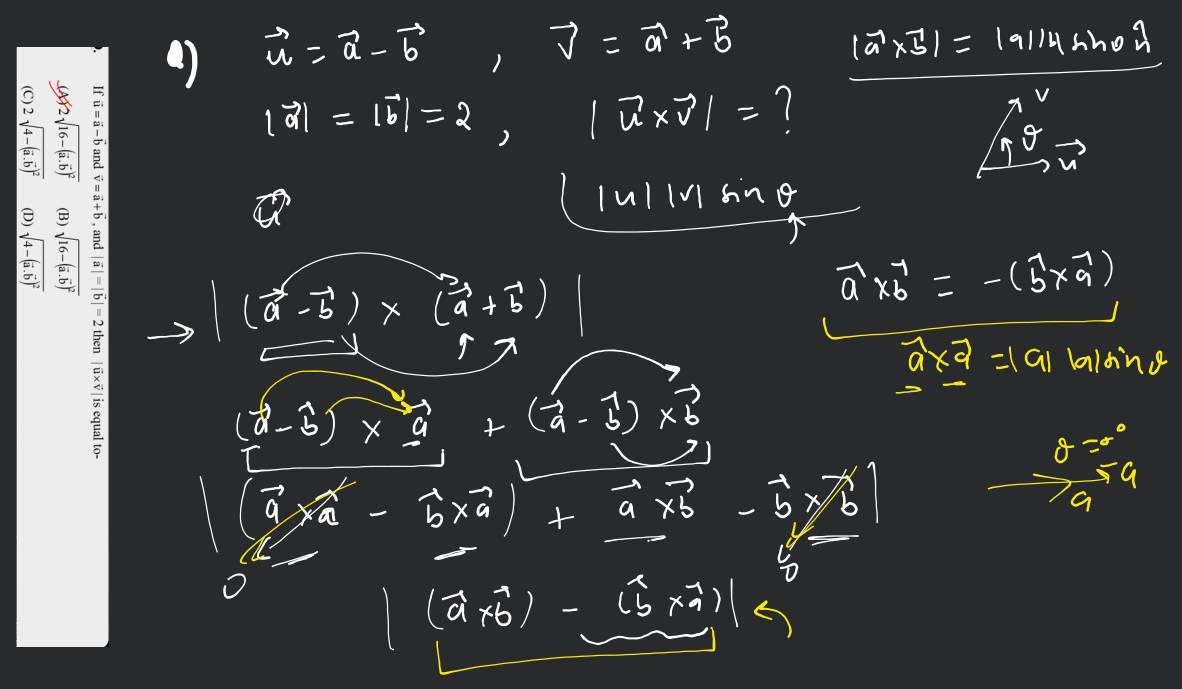 If ū = ā − b̄ and v̄ = ā + b̄, and |ā| = |b̄| = 2 then |ū×v̄| is equal to-
(A) 2√16−(ā.b̄)² (B) √16−(ā.b̄)²
(C) 2√4−(ā.b̄)² (D) √4−(ā.b̄)²
Q) u⃗ = a⃗ − b⃗ , v⃗ = a⃗ + b⃗
|a⃗| = |b⃗| = 2 , |u⃗ × v⃗| = ?
|u| |v| sin θ
|a⃗ × b⃗| =
v
θ
u⃗
→ |(a⃗ − b⃗) × (a⃗ + b⃗)|
a⃗ × b⃗ = −(b⃗ × a⃗)
a⃗ × a⃗ = |a| |a| sin θ
(a⃗ − b⃗) × a⃗ + (a⃗ − b⃗) × b⃗
θ = 0°
a
a
|(a⃗ × a⃗ − b⃗ × a⃗) + a⃗ × b⃗ − b⃗ × b⃗|
0 0
|(a⃗ × b⃗) − (b⃗ × a⃗)|